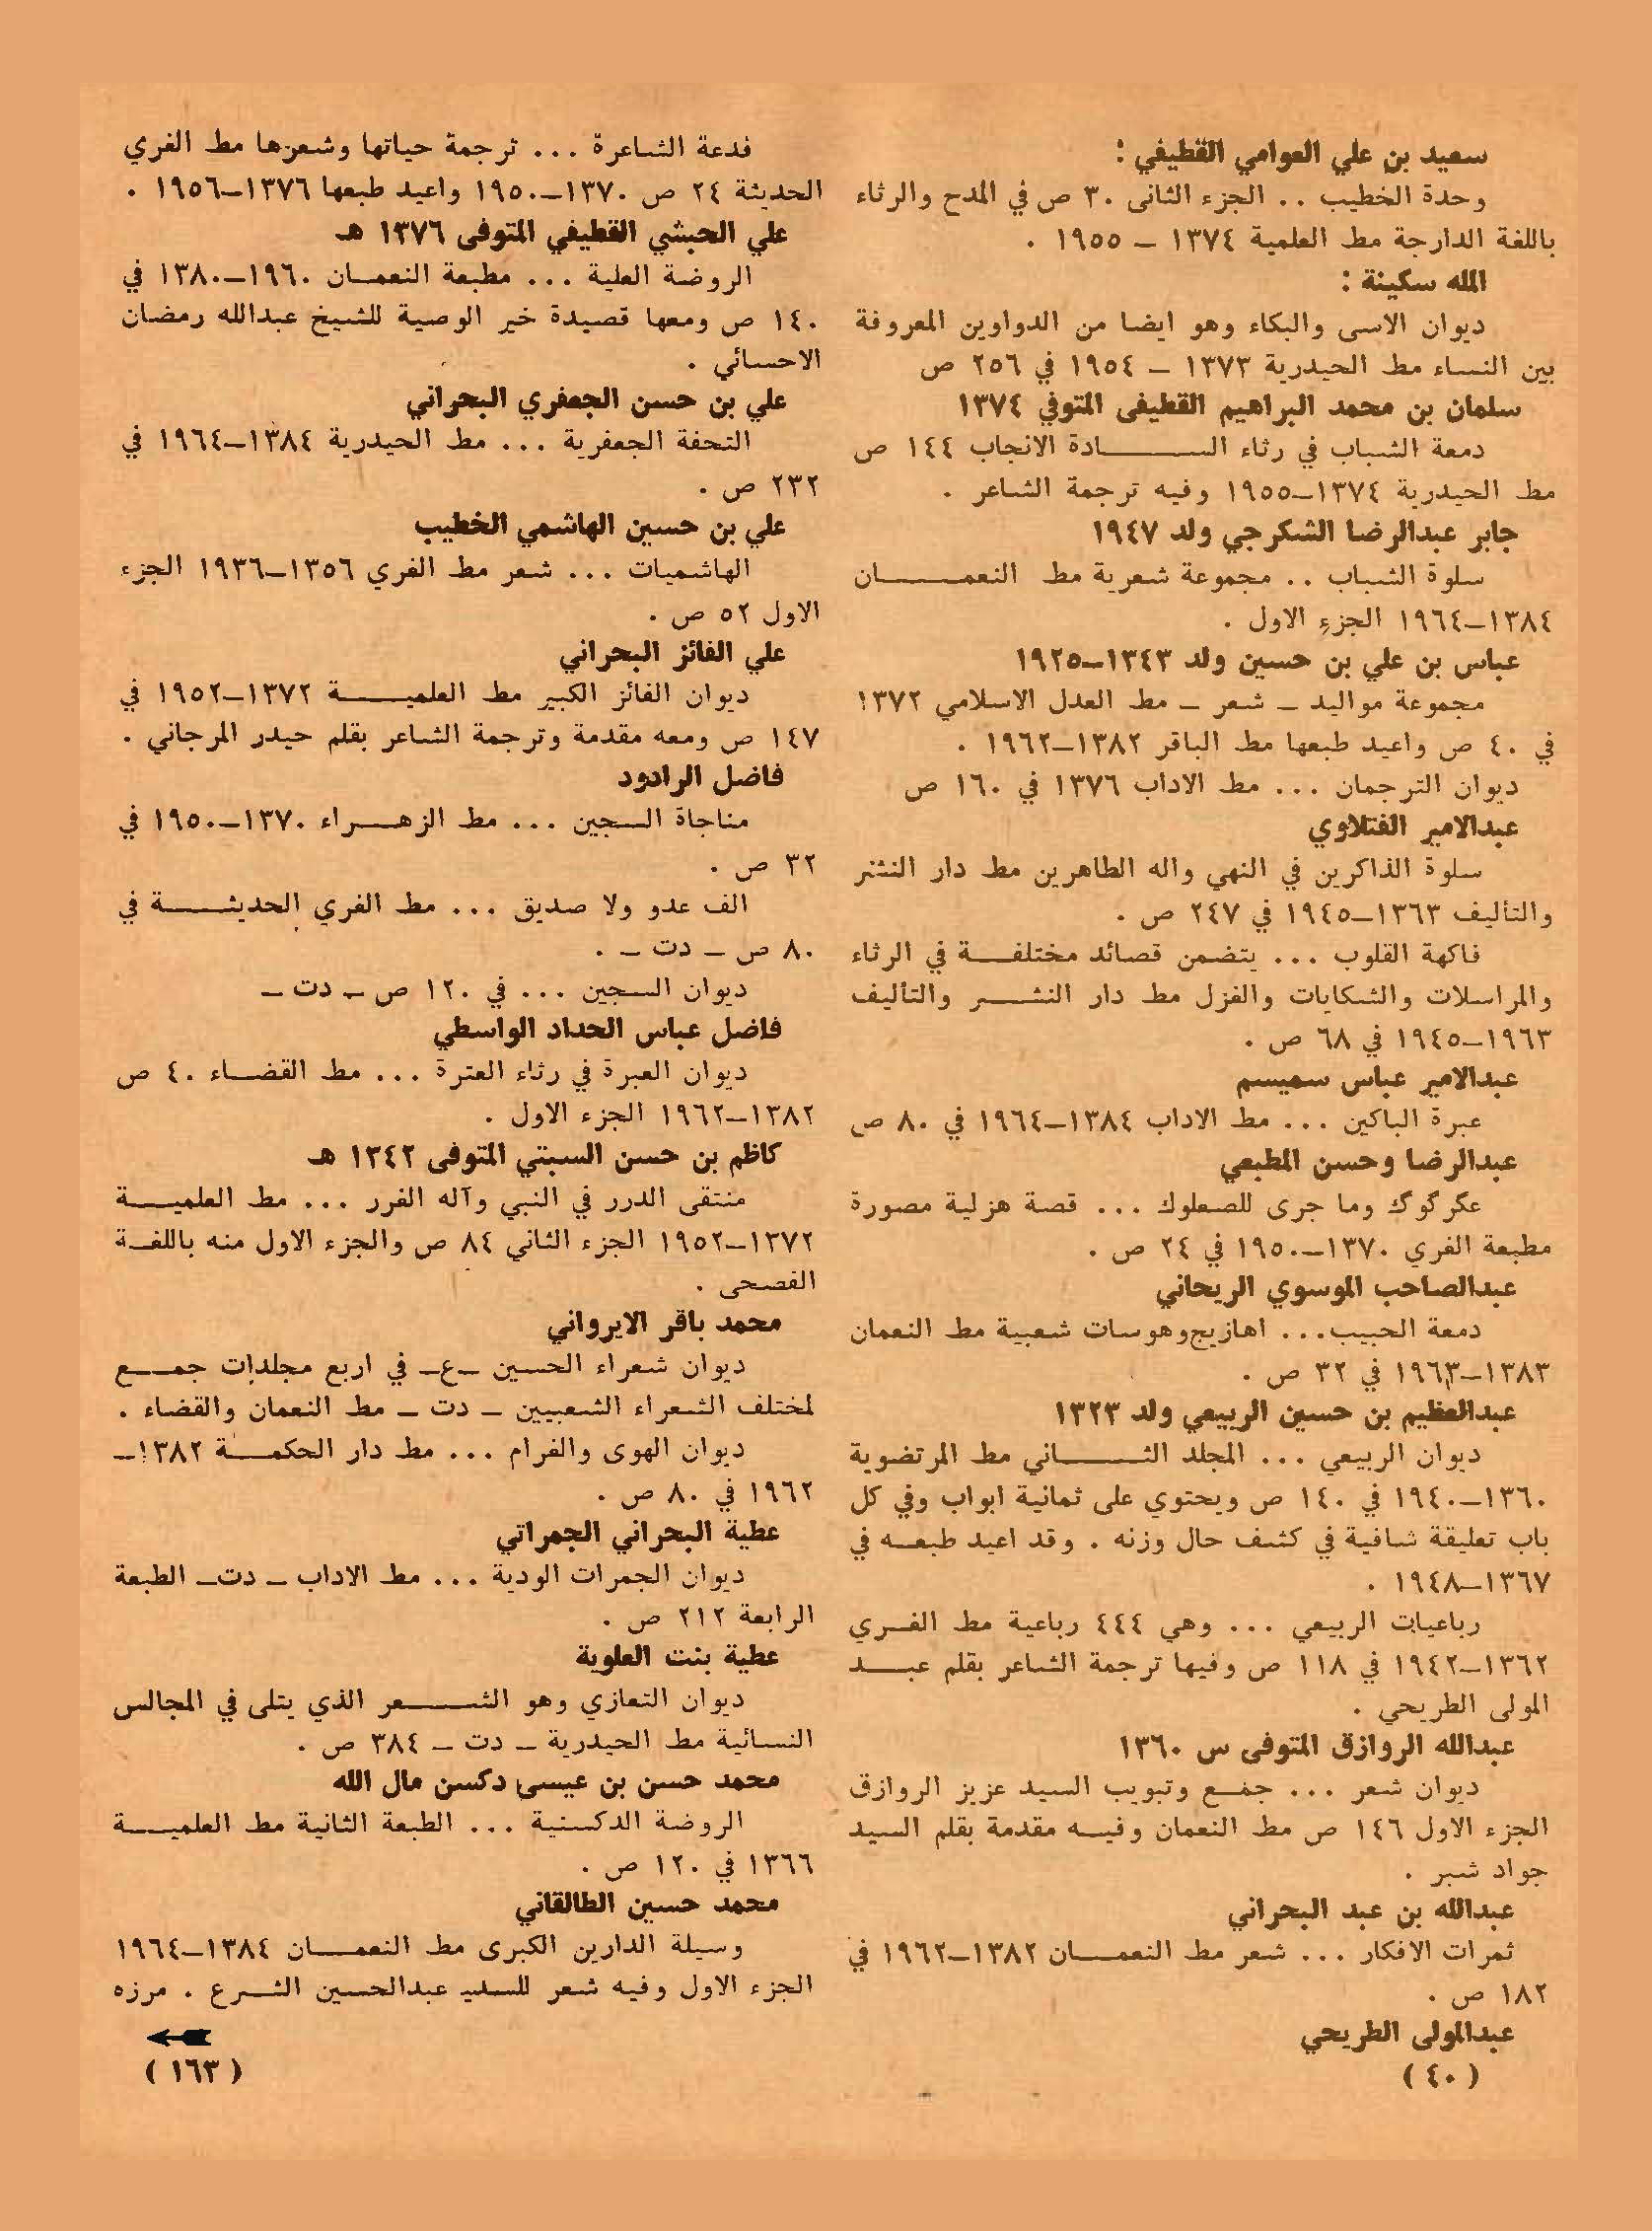 سعيد بن علي العوامي القطيفي :
وحدة الخطيب .. الجزء الثانى ٣٠ ص في المدح والرثاء
باللغة الدارجة مط العلمية ١٣٧٤ – ١٩٥٥ .
الله سكينة :
ديوان الاسى والبكاء وهو ايضا من الدواوين المعروفة
بين النساء مط الحيدرية ١٣٧٣ – ١٩٥٤ في ٢٥٦ ص
سلمان بن محمد البراهيم القطيفى المتوفي ١٣٧٤
دمعة الشباب في رثاء السادة الانجاب ١٤٤ ص
مط الحيدرية ١٣٧٤–١٩٥٥ وفيه ترجمة الشاعر .
جابر عبدالرضا الشكرجي ولد ١٩٤٧
سلوة الشباب .. مجموعة شعرية مط النعمان
١٣٨٤–١٩٦٤ الجزء الاول .
عباس بن علي بن حسين ولد ١٣٤٣–١٩٢٥
مجموعة مواليد – شعر – مط العدل الاسلامي ١٣٧٢
في ٤٠ ص واعيد طبعها مط الباقر ١٣٨٢–١٩٦٢ .
ديوان الترجمان ... مط الاداب ١٣٧٦ في ١٦٠ ص
عبدالامير الفتلاوي
سلوة الذاكرين في النهي واله الطاهرين مط دار النشر
والتأليف ١٣٦٣–١٩٤٥ في ٢٤٧ ص .
فاكهة القلوب ... يتضمن قصائد مختلفة في الرثاء
والمراسلات والشكايات والغزل مط دار النشر والتأليف
١٩٦٣–١٩٤٥ في ٦٨ ص .
عبدالامير عباس سميسم
عبرة الباكين ... مط الاداب ١٣٨٤–١٩٦٤ في ٨٠ ص
عبدالرضا وحسن المطبعي
عگرگوگ وما جرى للصعلوك ... قصة هزلية مصورة
مطبعة الغري ١٣٧٠–١٩٥٠ في ٢٤ ص .
عبدالصاحب الموسوي الريحاني
دمعة الحبيب... اهازيج وهوسات شعبية مط النعمان
١٣٨٣–١٩٦٣ في ٣٢ ص .
عبدالعظيم بن حسين الربيعي ولد ١٣٢٣
ديوان الربيعي ... المجلد الثاني مط المرتضوية
١٣٦٠–١٩٤٠ في ١٤٠ ص ويحتوي على ثمانية ابواب وفي كل
باب تعليقة شافية في كشف حال وزنه . وقد اعيد طبعه في
١٣٦٧–١٩٤٨ .
رباعيات الربيعي ... وهي ٤٤٤ رباعية مط الغري
١٣٦٢–١٩٤٢ في ١١٨ ص وفيها ترجمة الشاعر بقلم عبد
المولى الطريحي .
عبدالله الروازق المتوفى س ١٣٦٠
ديوان شعر ... جمع وتبويب السيد عزيز الروازق
الجزء الاول ١٤٦ ص مط النعمان وفيه مقدمة بقلم السيد
جواد شبر .
عبدالله بن عبد البحراني
ثمرات الافكار ... شعر مط النعمان ١٣٨٢–١٩٦٢ في
١٨٢ ص .
عبدالمولى الطريحي
( ٤٠ )
فدعة الشاعرة ... ترجمة حياتها وشعرها مط الغري
الحديثة ٢٤ ص ١٣٧٠–١٩٥٠ واعيد طبعها ١٣٧٦–١٩٥٦ .
علي الحبشي القطيفي المتوفى ١٣٧٦ هـ
الروضة العلية ... مطبعة النعمان ١٩٦٠–١٣٨٠ في
١٤٠ ص ومعها قصيدة خير الوصية للشيخ عبدالله رمضان
الاحسائي .
علي بن حسن الجعفري البحراني
التحفة الجعفرية ... مط الحيدرية ١٣٨٤–١٩٦٤ في
٢٣٢ ص .
علي بن حسين الهاشمي الخطيب
الهاشميات ... شعر مط الغري ١٣٥٦–١٩٣٦ الجزء
الاول ٥٢ ص .
علي الفائز البحراني
ديوان الفائز الكبير مط العلمية ١٣٧٢–١٩٥٢ في
١٤٧ ص ومعه مقدمة وترجمة الشاعر بقلم حيدر المرجاني .
فاضل الرادود
مناجاة السجين ... مط الزهراء ١٣٧٠–١٩٥٠ في
٣٢ ص .
الف عدو ولا صديق ... مط الغري الحديثة في
٨٠ ص – دت – .
ديوان السجين ... في ١٢٠ ص – دت –
فاضل عباس الحداد الواسطي
ديوان العبرة في رثاء العترة ... مط القضاء ٤٠ ص
١٣٨٢–١٩٦٢ الجزء الاول .
كاظم بن حسن السبتي المتوفى ١٣٤٢ هـ
منتقى الدرر في النبي وآله الغرر ... مط العلمية
١٣٧٢–١٩٥٢ الجزء الثاني ٨٤ ص والجزء الاول منه باللغة
الفصحى .
محمد باقر الايرواني
ديوان شعراء الحسين –ع– في اربع مجلدات جمع
لمختلف الشعراء الشعبيين – دت – مط النعمان والقضاء .
ديوان الهوى والغرام ... مط دار الحكمة ١٣٨٢–
١٩٦٢ في ٨٠ ص .
عطية البحراني الجمراتي
ديوان الجمرات الودية ... مط الاداب – دت– الطبعة
الرابعة ٢١٢ ص .
عطية بنت العلوية
ديوان التعازي وهو الشعر الذي يتلى في المجالس
النسائية مط الحيدرية – دت – ٣٨٤ ص .
محمد حسن بن عيسى دكسن مال الله
الروضة الدكسنية ... الطبعة الثانية مط العلمية
١٣٦٦ في ١٢٠ ص .
محمد حسين الطالقاني
وسيلة الدارين الكبرى مط النعمان ١٣٨٤–١٩٦٤
الجزء الاول وفيه شعر للسيد عبدالحسين الشرع . مرزه
( ١٦٣ )